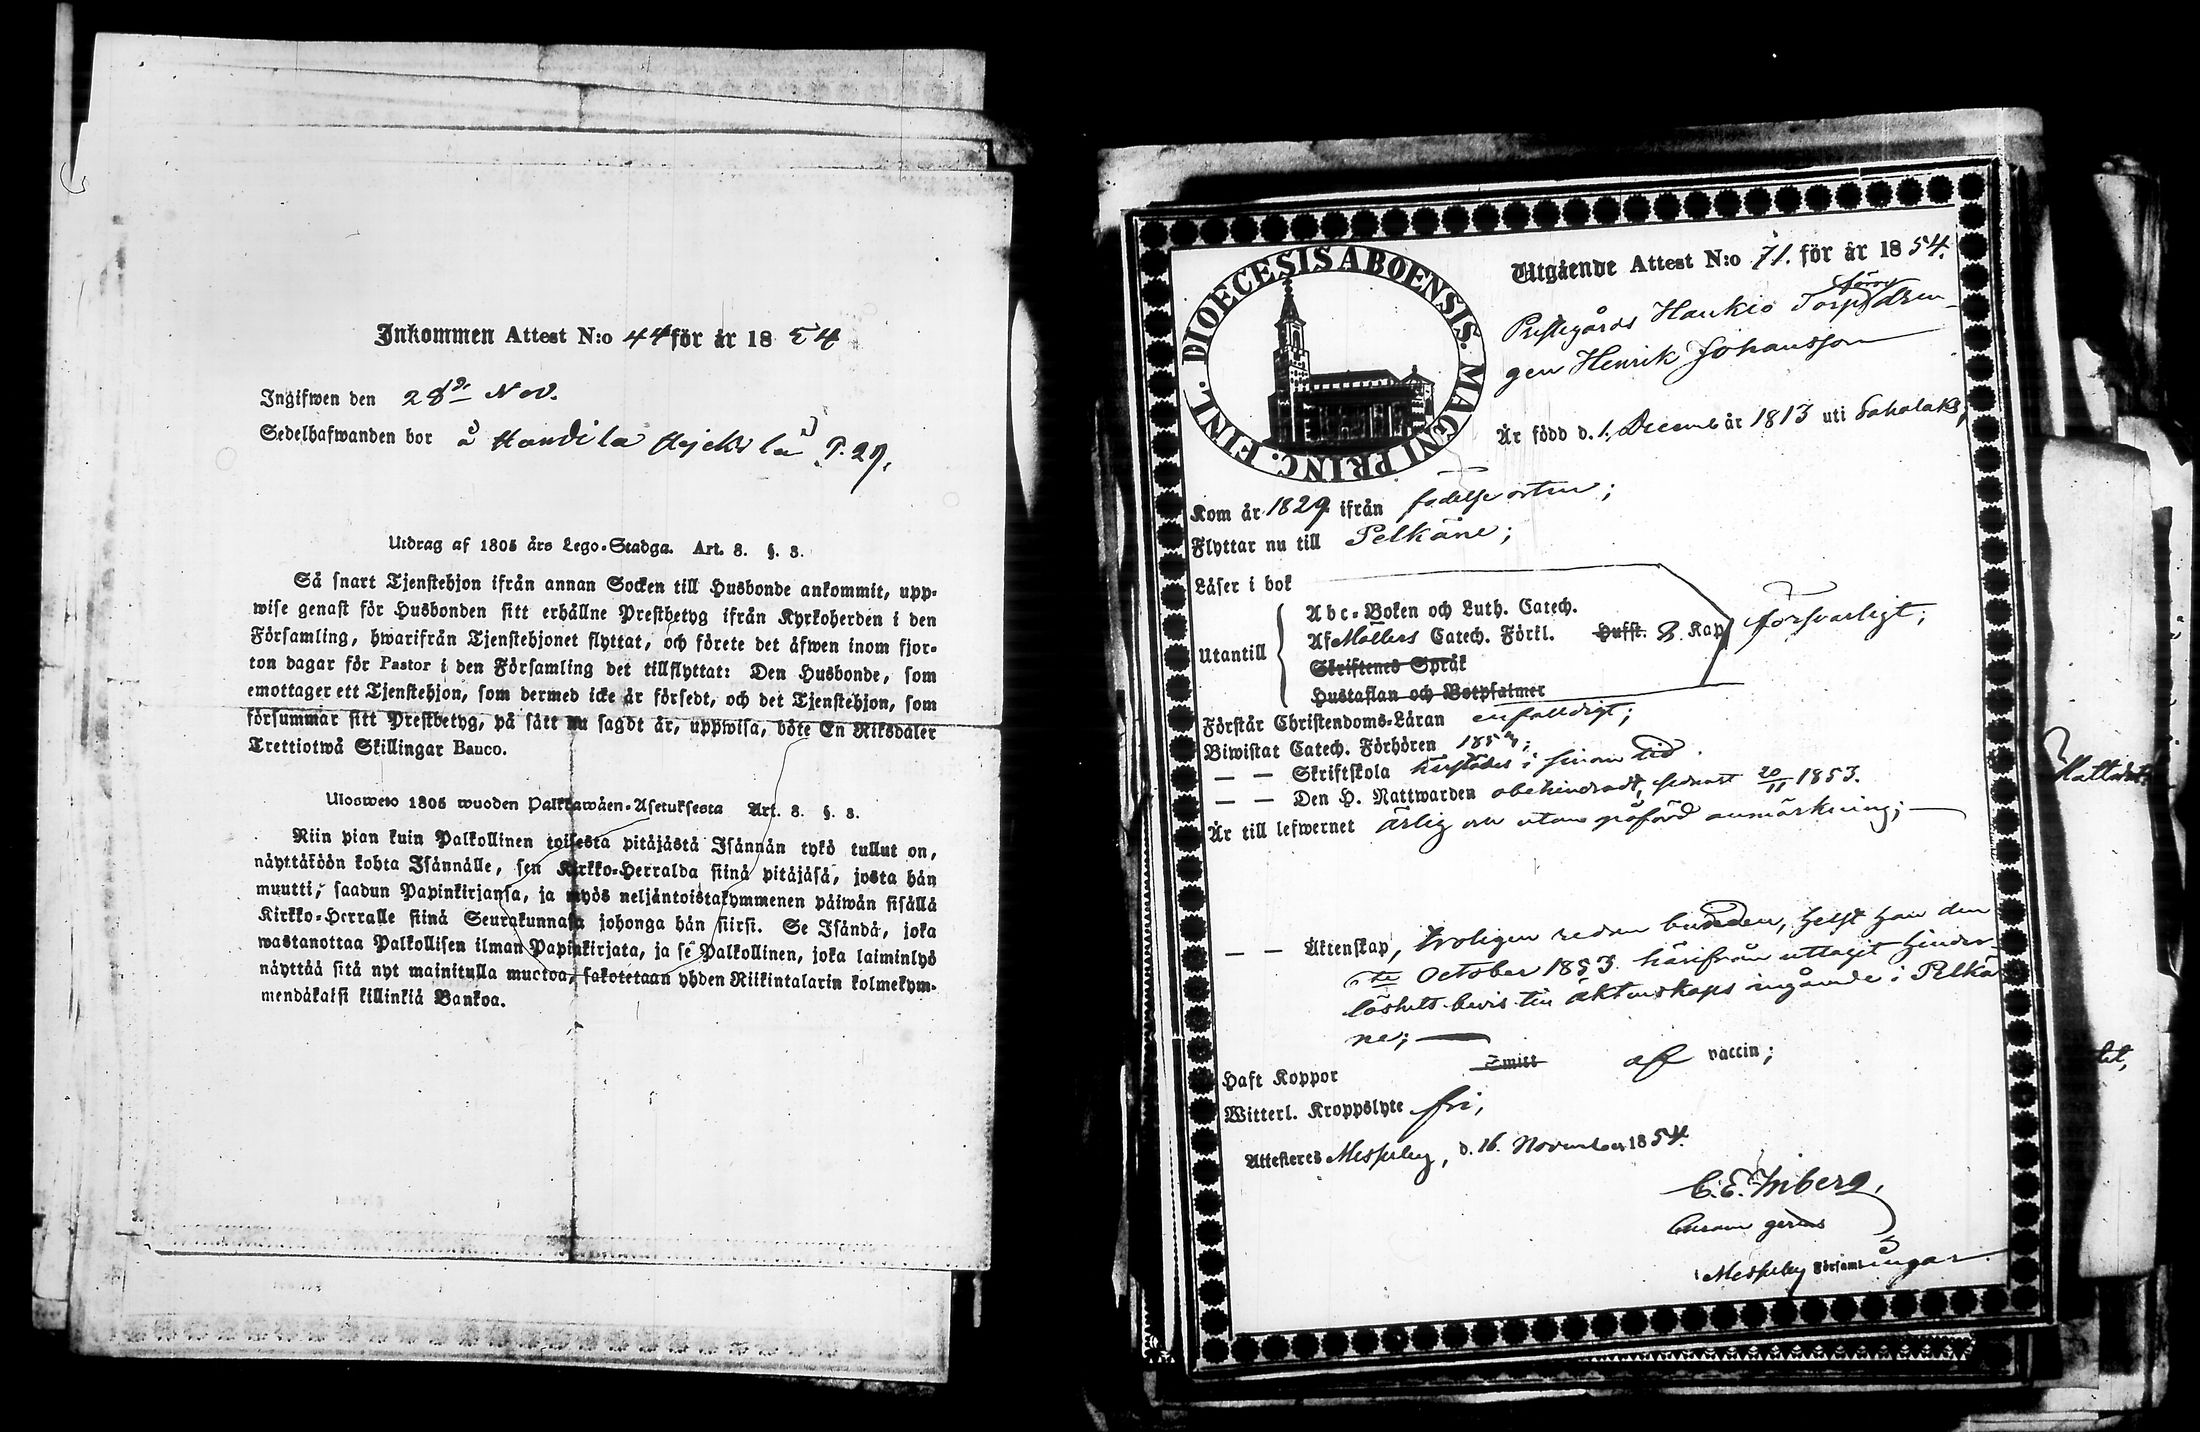 Inkommen Attest N:o 44 för år 1854
Ingifwen den 28de Nov.
Sedelhafwanden bor å Haudila P. 29.
Utdrag af 1805 års Lego-Stadga. Art. 8. §. 8.
Så snart Tjenstehjon ifrån annan Socken till Husbonde ankommit, upp-
wise genast för Husbonden sitt erhållne Prestbetyg ifrån Kyrkoherden i den
Församling, hwarifrån Tjenstehjonet flyttat, och förete det äfwen inom fjor-
ton dagar för Pastor i den Församling det tillflyttat: Den Husbonde, som
emottager ett Tjenstehjon, som dermed icke är försedt, och det Tjenstehjon, som
försummar sitt Prestbetyg, på sätt nu sagdt är, uppwisa, böte En Riksdaler
Trettiotwå Skillingar Banco.
Ulosweto 1805 wuoden Palkkawäen-Asetuksesta Art. 8. §. 8.
Niin pian kuin Palkollinen toisesta pitäjästä Isännän tykö tullut on,
näyttäköön kohta Isännälle, sen Kirkko-Herralda siinä pitäjäsä, josta hän
muutti, saadun Papinkirjansa, ja myös neljäntoistakymmenen päiwän sisällä
Kirkko-Herralle siinä Seurakunnasa johonga hän siirsi. Se Isändä, joka
wastanottaa Palkollisen ilman Papinkirjata, ja se Palkollinen, joka laiminlyö
näyttää sitä nyt mainitulla muotoa, sakotetaan yhden Riikintalarin kolmekym-
mendäkaksi killinkiä Bankoa.
DIOECESIS ABOENSIS. MAGNI PRINC. FINL.
Utgående Attest N:o 71. för år 1854.
förre
Prestegårds Haukio Torpdren-
gen Henrik Johansson
Är född d. 1. Decemb år 1813 uti Sahalaks,
Kom år 1829 ifrån födelse orten;
Flyttar nu till Pelkäne;
Läser i bok
Abc-Boken och Luth. Catech.
Utantill Af Möllers Catech. Förkl. Hufst. 8. Kap försvarligt;
Skriftenes Språk
Hustaflan och Botpsalmer
Förstår Christendoms-Läran enfalldigt;
Biwistat Catech. Förhören 1854;
— — Skriftskola härstädes i sinom tid.
— — Den H. Nattwarden obehindradt, senast 20/11 1853.
Är till lefwernet ärlig och utan påförd anmärkning; —
— — Äktenskap, troligen redan bunden, helst han den
October 1853 härifrån uttagit hinder-
löshets bevis till äktenskaps ingående i Pelkä-
ne; —
Haft Koppor Smitt af vaccin;
Witterl. Kroppslyte fri;
Attesteres Messuby, d. 16. November 1854.
C. E. Inberg,
Curam gerens
Messuby Församlingar